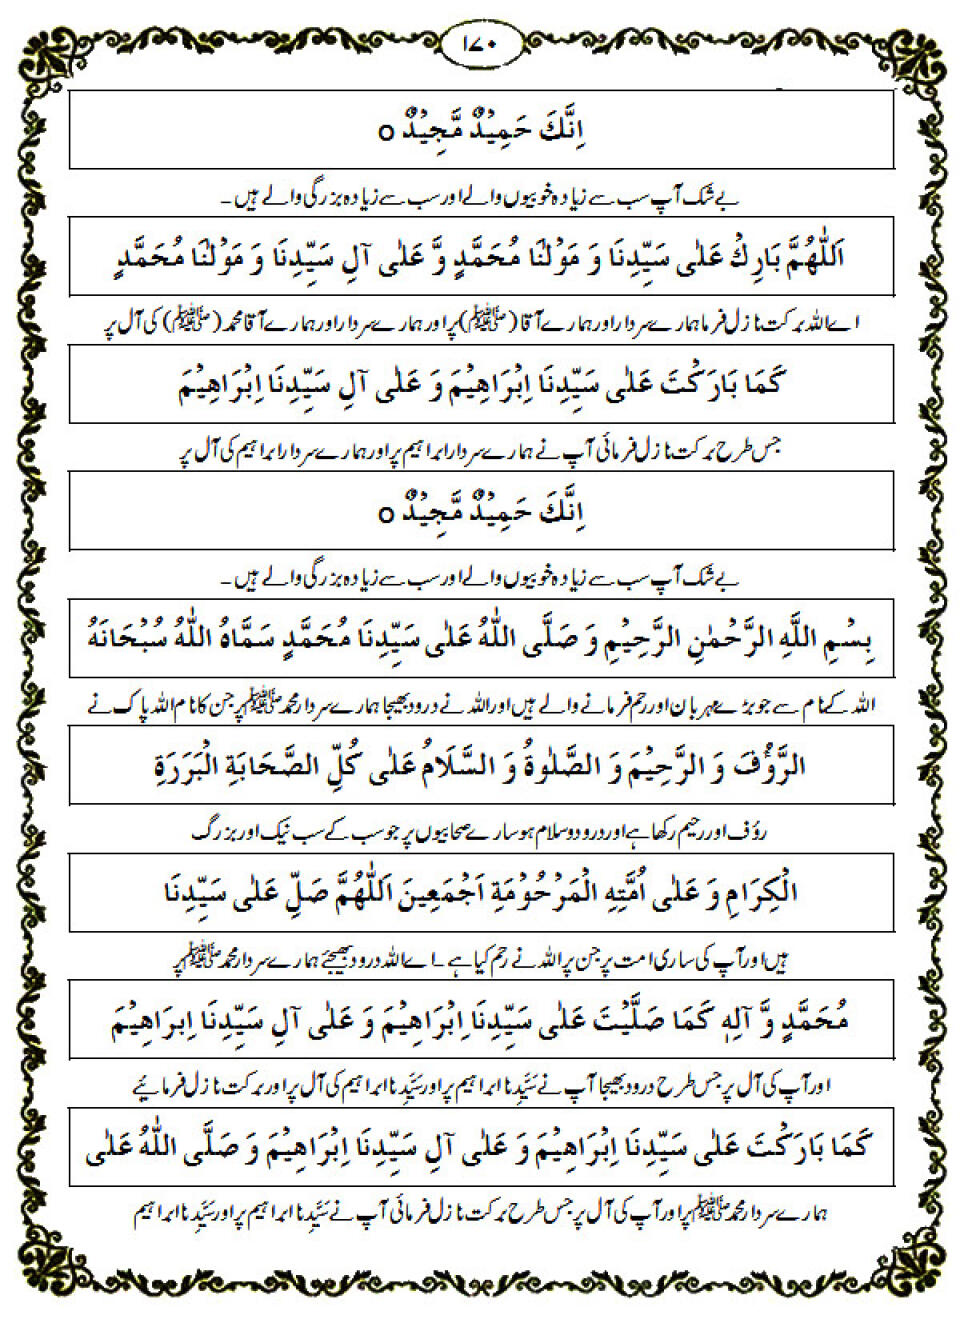 ۱۷۰
اِنَّكَ حَمِيْدٌ مَّجِيْدٌ o
بے شک آپ سب سے زیادہ خوبیوں والے اور سب سے زیادہ بزرگی والے ہیں۔
اَللّٰهُمَّ بَارِكْ عَلٰى سَيِّدِنَا وَ مَوْلٰنَا مُحَمَّدٍ وَّ عَلٰى آلِ سَيِّدِنَا وَ مَوْلٰنَا مُحَمَّدٍ
اے اللہ برکت نازل فرما ہمارے سردار اور ہمارے آقا (ﷺ) پر اور ہمارے سردار اور ہمارے آقا محمد (ﷺ) کی آل پر
كَمَا بَارَكْتَ عَلٰى سَيِّدِنَا اِبْرَاهِيْمَ وَ عَلٰى آلِ سَيِّدِنَا اِبْرَاهِيْمَ
جس طرح برکت نازل فرمائی آپ نے ہمارے سردار ابراہیم پر اور ہمارے سردار ابراہیم کی آل پر
اِنَّكَ حَمِيْدٌ مَّجِيْدٌ o
بے شک آپ سب سے زیادہ خوبیوں والے اور سب سے زیادہ بزرگی والے ہیں۔
بِسْمِ اللَّهِ الرَّحْمٰنِ الرَّحِيْمِ وَ صَلَّى اللّٰهُ عَلٰى سَيِّدِنَا مُحَمَّدٍ سَمَّاهُ اللّٰهُ سُبْحَانَهُ
اللہ کے نام سے جو بڑے مہربان اور رحم فرمانے والے ہیں اور اللہ نے درود بھیجا ہمارے سردار محمد ﷺ پر جن کا نام اللہ پاک نے
الرَّؤُفَ وَ الرَّحِيْمَ وَ الصَّلٰوةُ وَ السَّلَامُ عَلٰى كُلِّ الصَّحَابَةِ الْبَرَرَةِ
رؤف اور رحیم رکھا ہے اور درود و سلام ہو سارے صحابیوں پر جو سب کے سب نیک اور بزرگ
الْكِرَامِ وَ عَلٰى اُمَّتِهِ الْمَرْحُوْمَةِ اَجْمَعِينَ اَللّٰهُمَّ صَلِّ عَلٰى سَيِّدِنَا
ہیں اور آپ کی ساری امت پر جن پر اللہ نے رحم کیا ہے۔ اے اللہ درود بھیجئے ہمارے سردار محمد ﷺ پر
مُحَمَّدٍ وَّ آلِهٖ كَمَا صَلَّيْتَ عَلٰى سَيِّدِنَا اِبْرَاهِيْمَ وَ عَلٰى آلِ سَيِّدِنَا اِبرَاهِيْمَ
اور آپ کی آل پر جس طرح درود بھیجا آپ نے سَیِّدِنا ابراہیم پر اور سَیِّدِنا ابراہیم کی آل پر اور برکت نازل فرمائیے
كَمَا بَارَكْتَ عَلٰى سَيِّدِنَا اِبْرَاهِيْمَ وَ عَلٰى آلِ سَيِّدِنَا اِبْرَاهِيْمَ وَ صَلَّى اللّٰهُ عَلٰى
ہمارے سردار محمد ﷺ پر اور آپ کی آل پر جس طرح برکت نازل فرمائی آپ نے سَیِّدِنا ابراہیم پر اور سَیِّدِنا ابراہیم